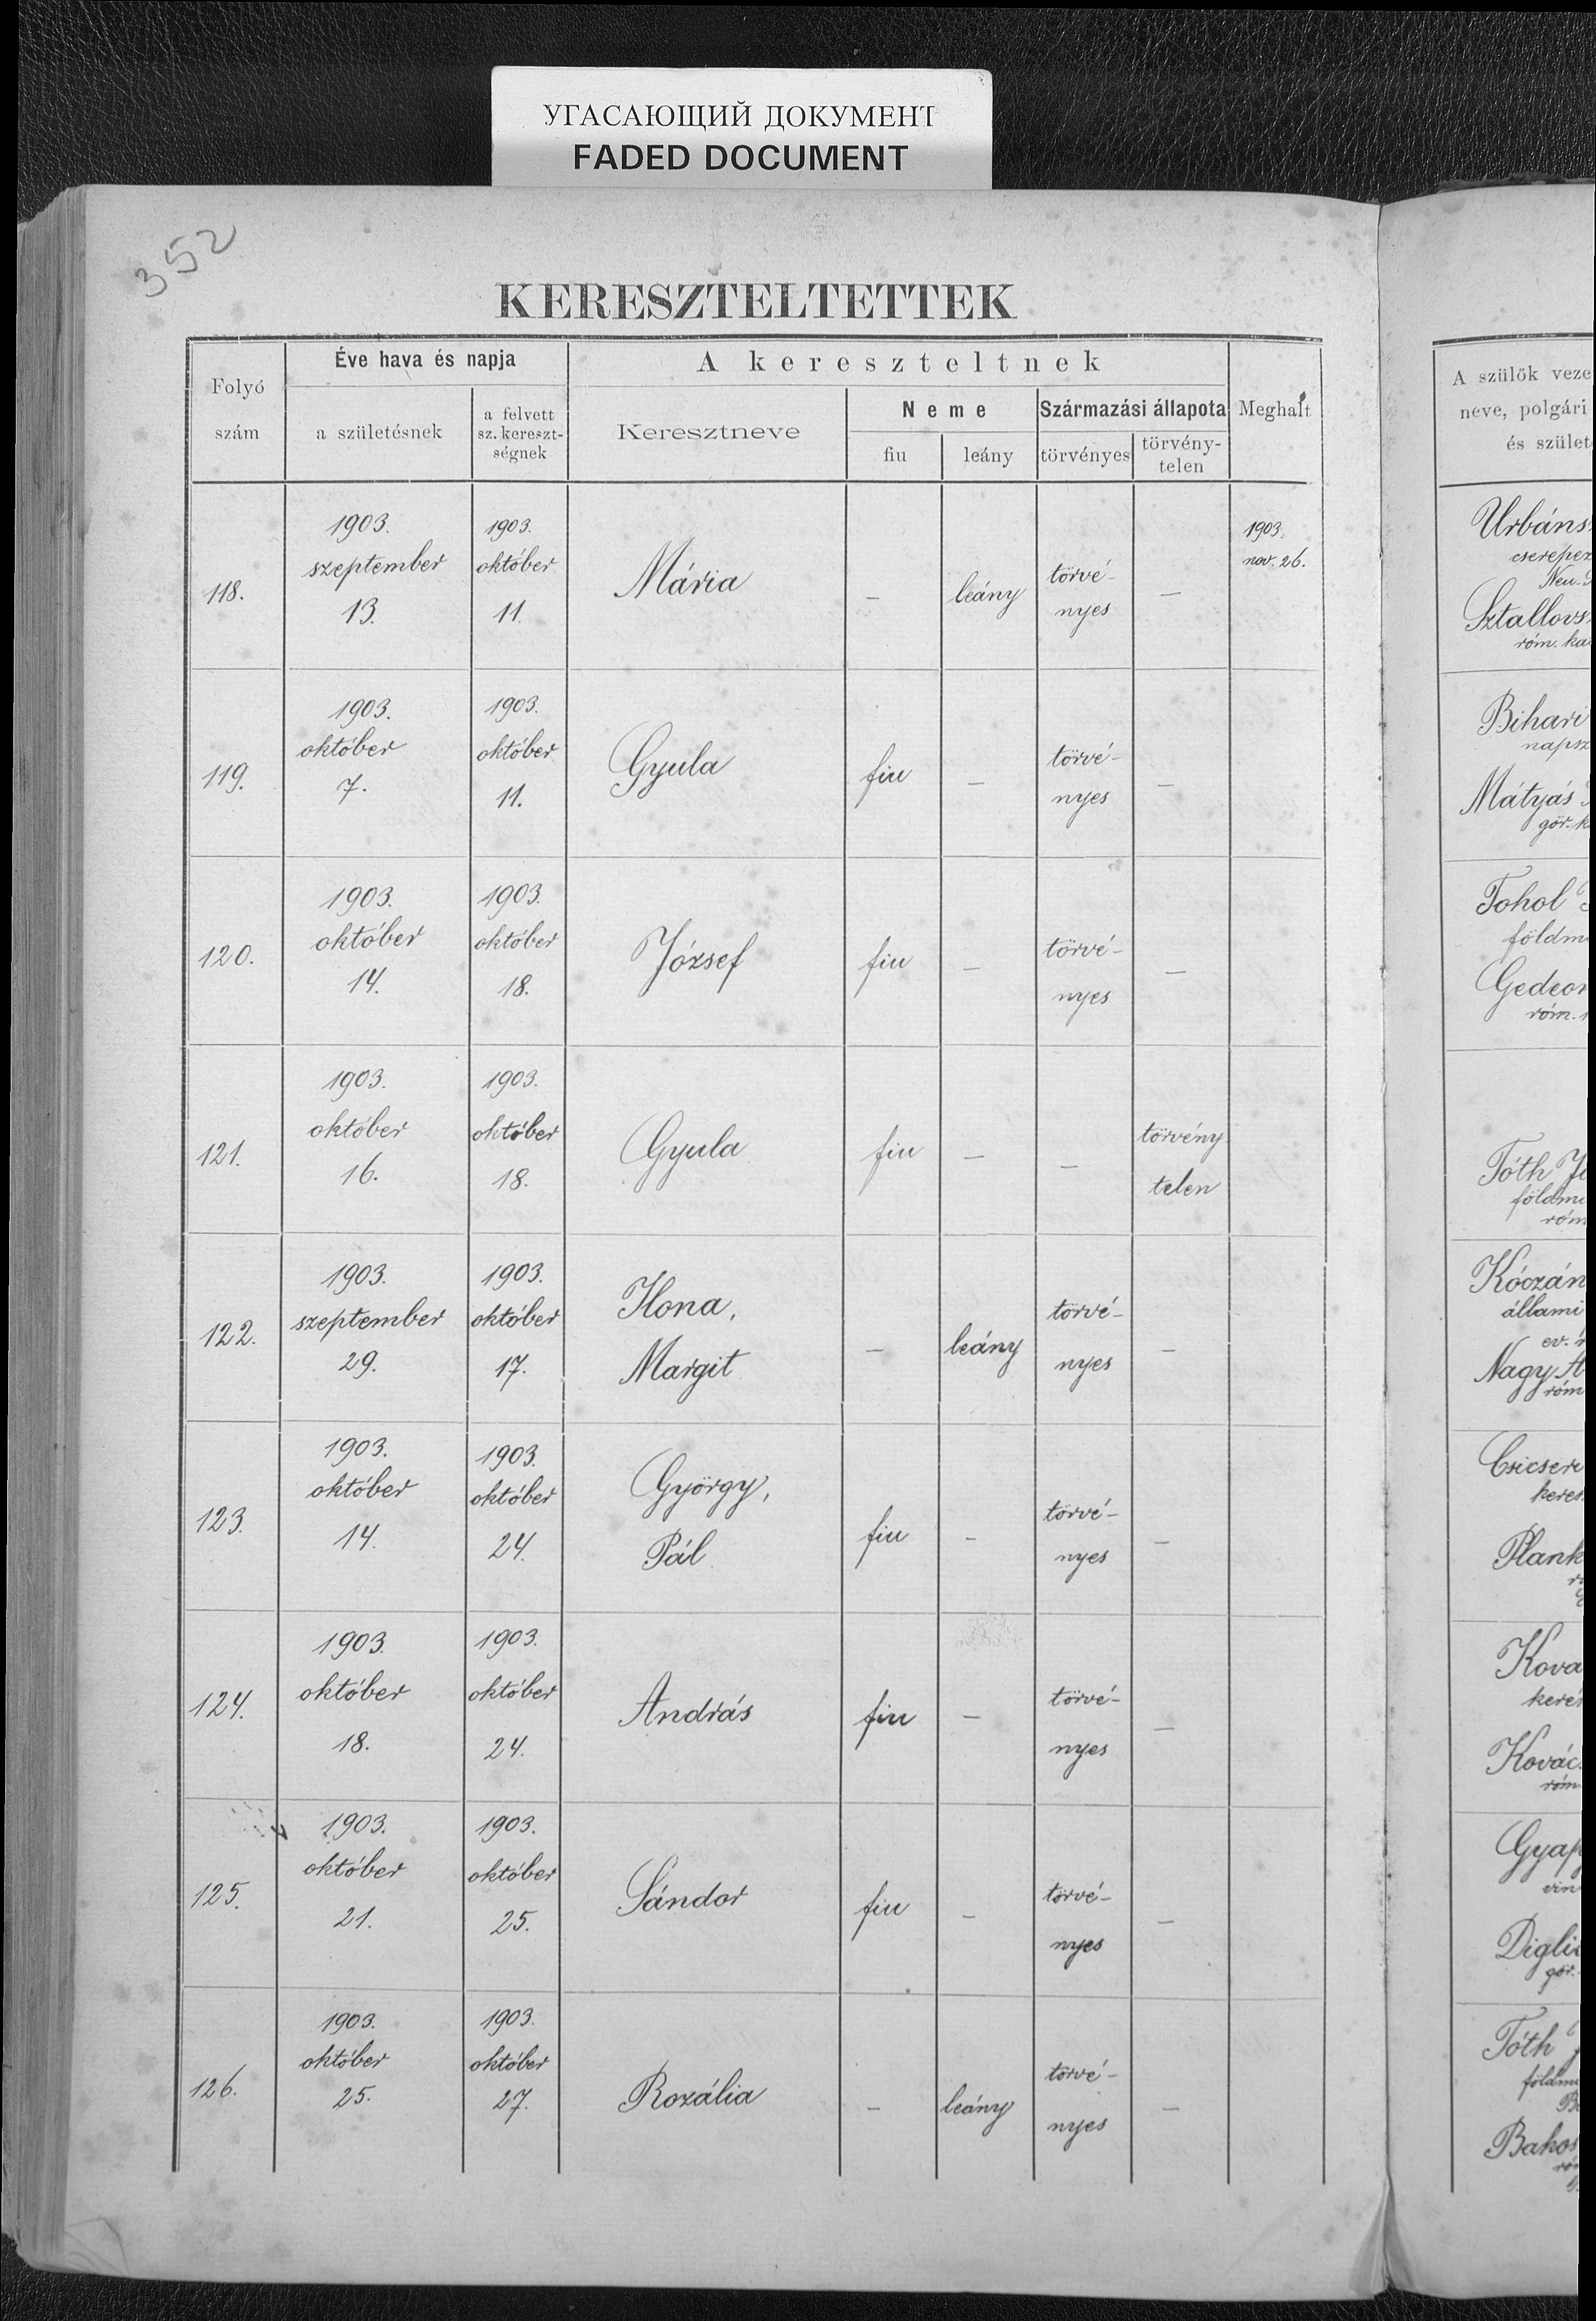 УГАСАЮЩИЙ ДОКУМЕНТ
FADED DOCUMENT
352
KERESZTELTETTEK
Folyó szám
Éve hava és napja
a születésnek
a felvett sz. kereszt-ségnek
A kereszteltnek
Keresztneve
Neme
fiu
leány
Származási állapota
törvényes
törvény-telen
Meghalt
118.
1903. szeptember 13.
1903. október 11.
Mária
–
leány
törvé-nyes
–
1903. nov. 26.
119.
1903. október 7.
1903. október 11.
Gyula
fiu
–
törvé-nyes
–
120.
1903. október 14.
1903. október 18.
József
fiu
–
törvé-nyes
–
121.
1903. október 16.
1903. október 18.
Gyula
fiu
–
–
törvény telen
122.
1903. szeptember 29.
1903. október 17.
Ilona, Margit
–
leány
törvé-nyes
–
123.
1903. október 14.
1903. október 24.
György, Pál
fiu
–
törvé-nyes
–
124.
1903. október 18.
1903. október 24.
András
fiu
–
törvé-nyes
–
125.
1903. október 21.
1903. október 25.
Sándor
fiu
–
törvé-nyes
–
126.
1903. október 25.
1903. október 27.
Rozália
–
leány
törvé-nyes
–
A szülők veze
neve, polgári
és szület
Urbáns
cserepez
Neu-
Sztallovs
róm. ka
Bihari
napsz
Mátyás
gör. k
Tohol
földm
Gedeon
róm.
Tóth Jó
földmi
róm
Kóczán
állami
ev. r
Nagy A
róm
Csicsere
keres
Plank
Kova
keres
Kovács
róm
Gyap
vin
Digli
gör.
Tóth J
földmi
Bakos